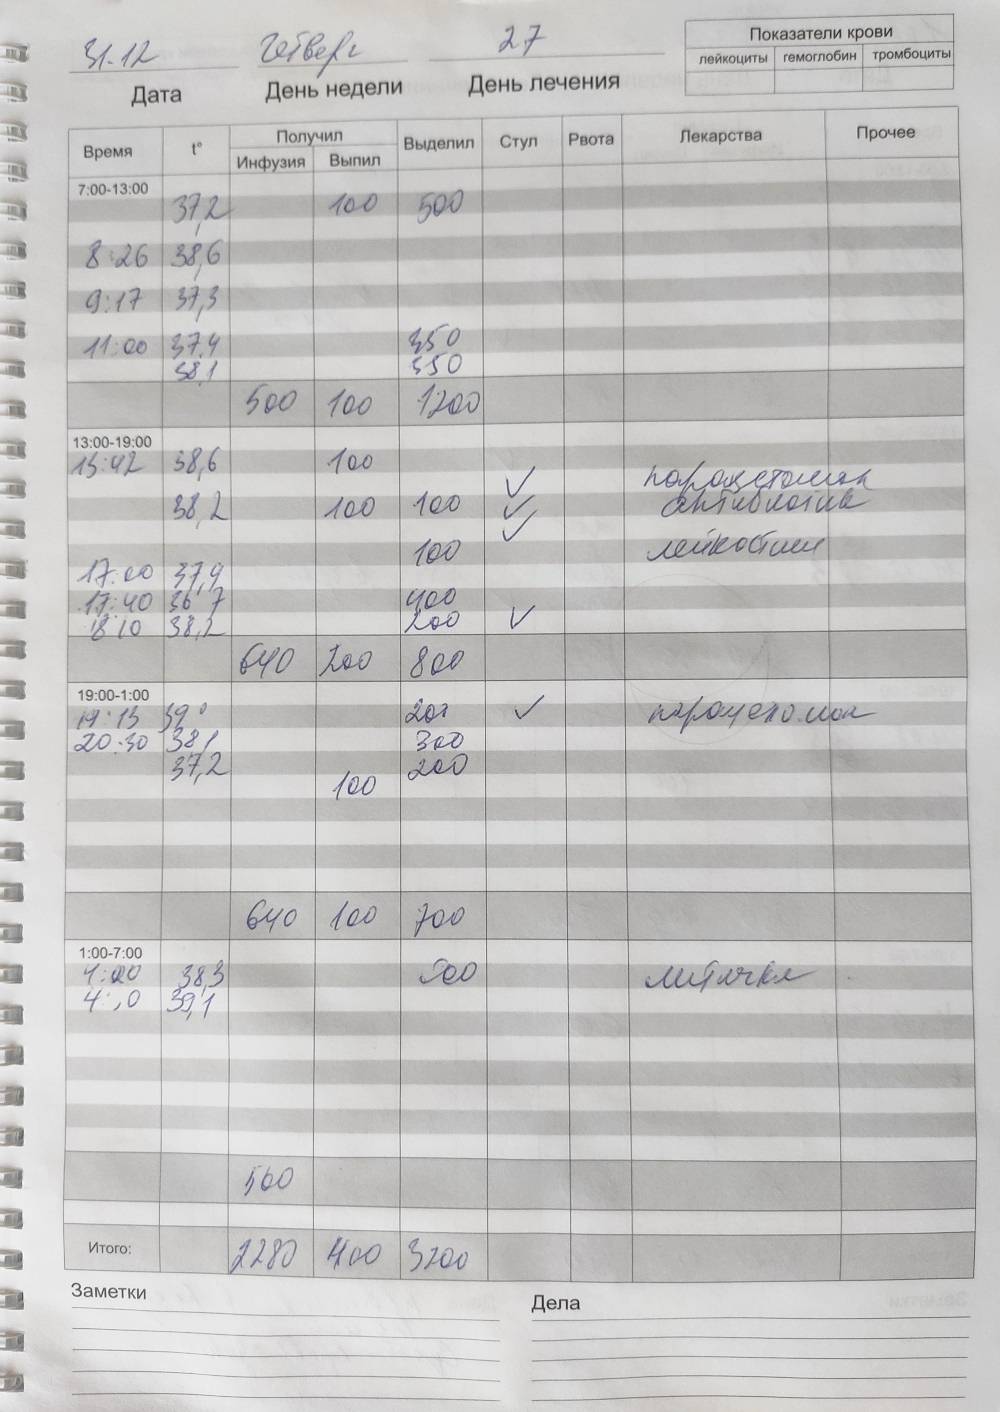 31.12 Четверг 27
Дата День недели День лечения
Показатели крови
лейкоциты гемоглобин тромбоциты
Время t° Получил Выделил Стул Рвота Лекарства Прочее
Инфузия Выпил
7:00-13:00
37,2 100 500
8:26 38,6
9:17 37,3
11:00 37,4 350
38,1 350
500 100 1200
13:00-19:00
15:42 38,6 100
✓ парацетамол
38,2 100 100 ✓ антибиотик
✓
100 лейкостим
17:00 37,4
17:40 36 7 400
18 10 38,2 200 ✓
640 200 800
19:00-1:00
19:15 39° 200 ✓ парацетамол
20:30 38,1 300
37,2 200
100
640 100 700
1:00-7:00
38,3 500 литичка
39,1
500
Итого: 2280 400 3200
Заметки
Дела